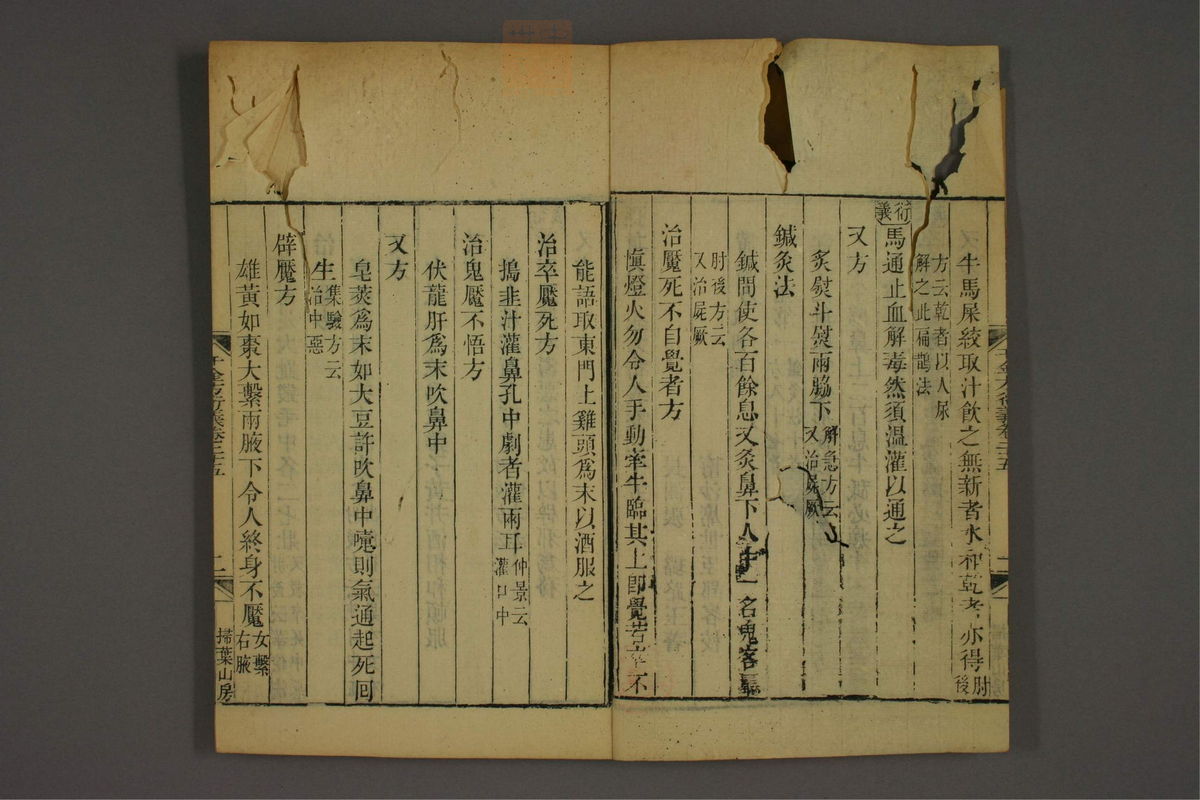 牛馬屎絞取汁飲之無新者水和乾者亦得肘後
方云乾者以人尿
解之此扁鵲法
衍義
馬通止血解毒然須溫灌以通之
又方
炙熨斗熨兩脇下解急方云又治屍厥
鍼灸法
鍼間使各百餘息又灸鼻下人中一名鬼客
肘後方云
又治屍厥
治魘死不自覺者方
愼燈火勿令人手動牽牛臨其上卽覺若牽不
能語取東門上雞頭爲末以酒服之
治卒魘死方
搗韭汁灌鼻孔中劇者灌兩耳仲景云灌口中
治鬼魘不悟方
伏龍肝爲末吹鼻中
又方
皂莢爲末如大豆許吹鼻中嚏則氣通起死回
生集驗方云治中惡
辟魘方
雄黃如棗大繫兩腋下令人終身不魘女繫右腋
千金方衍義卷二十五
二
掃葉山房